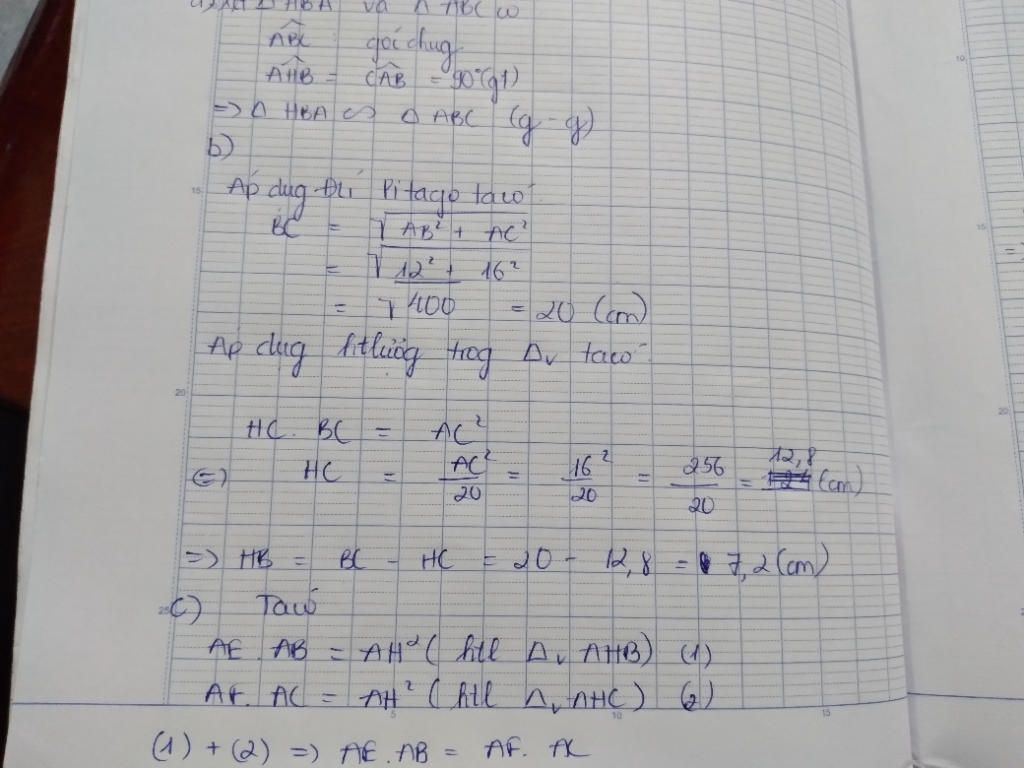 a) Xét Δ HBA và Δ ABC có
ABC góc chug
AHB = CAB = 90° (gt)
=> Δ HBA ∽ Δ ABC (g - g)
b)
Áp dụg Đlí Pitago ta có
BC = √AB² + AC²
= √12² + 16²
= √400 = 20 (cm)
Áp dụg htlượg trog Δv ta có
HC. BC = AC²
(=) HC = AC²/20 = 16²/20 = 256/20 = 12,8 (cm)
=> HB = BC - HC = 20 - 12,8 = 7,2 (cm)
c) Ta có
AE. AB = AH² ( htl Δv AHB) (1)
AF. AC = AH² ( htl Δv AHC) (2)
(1) + (2) => AE. AB = AF. AC